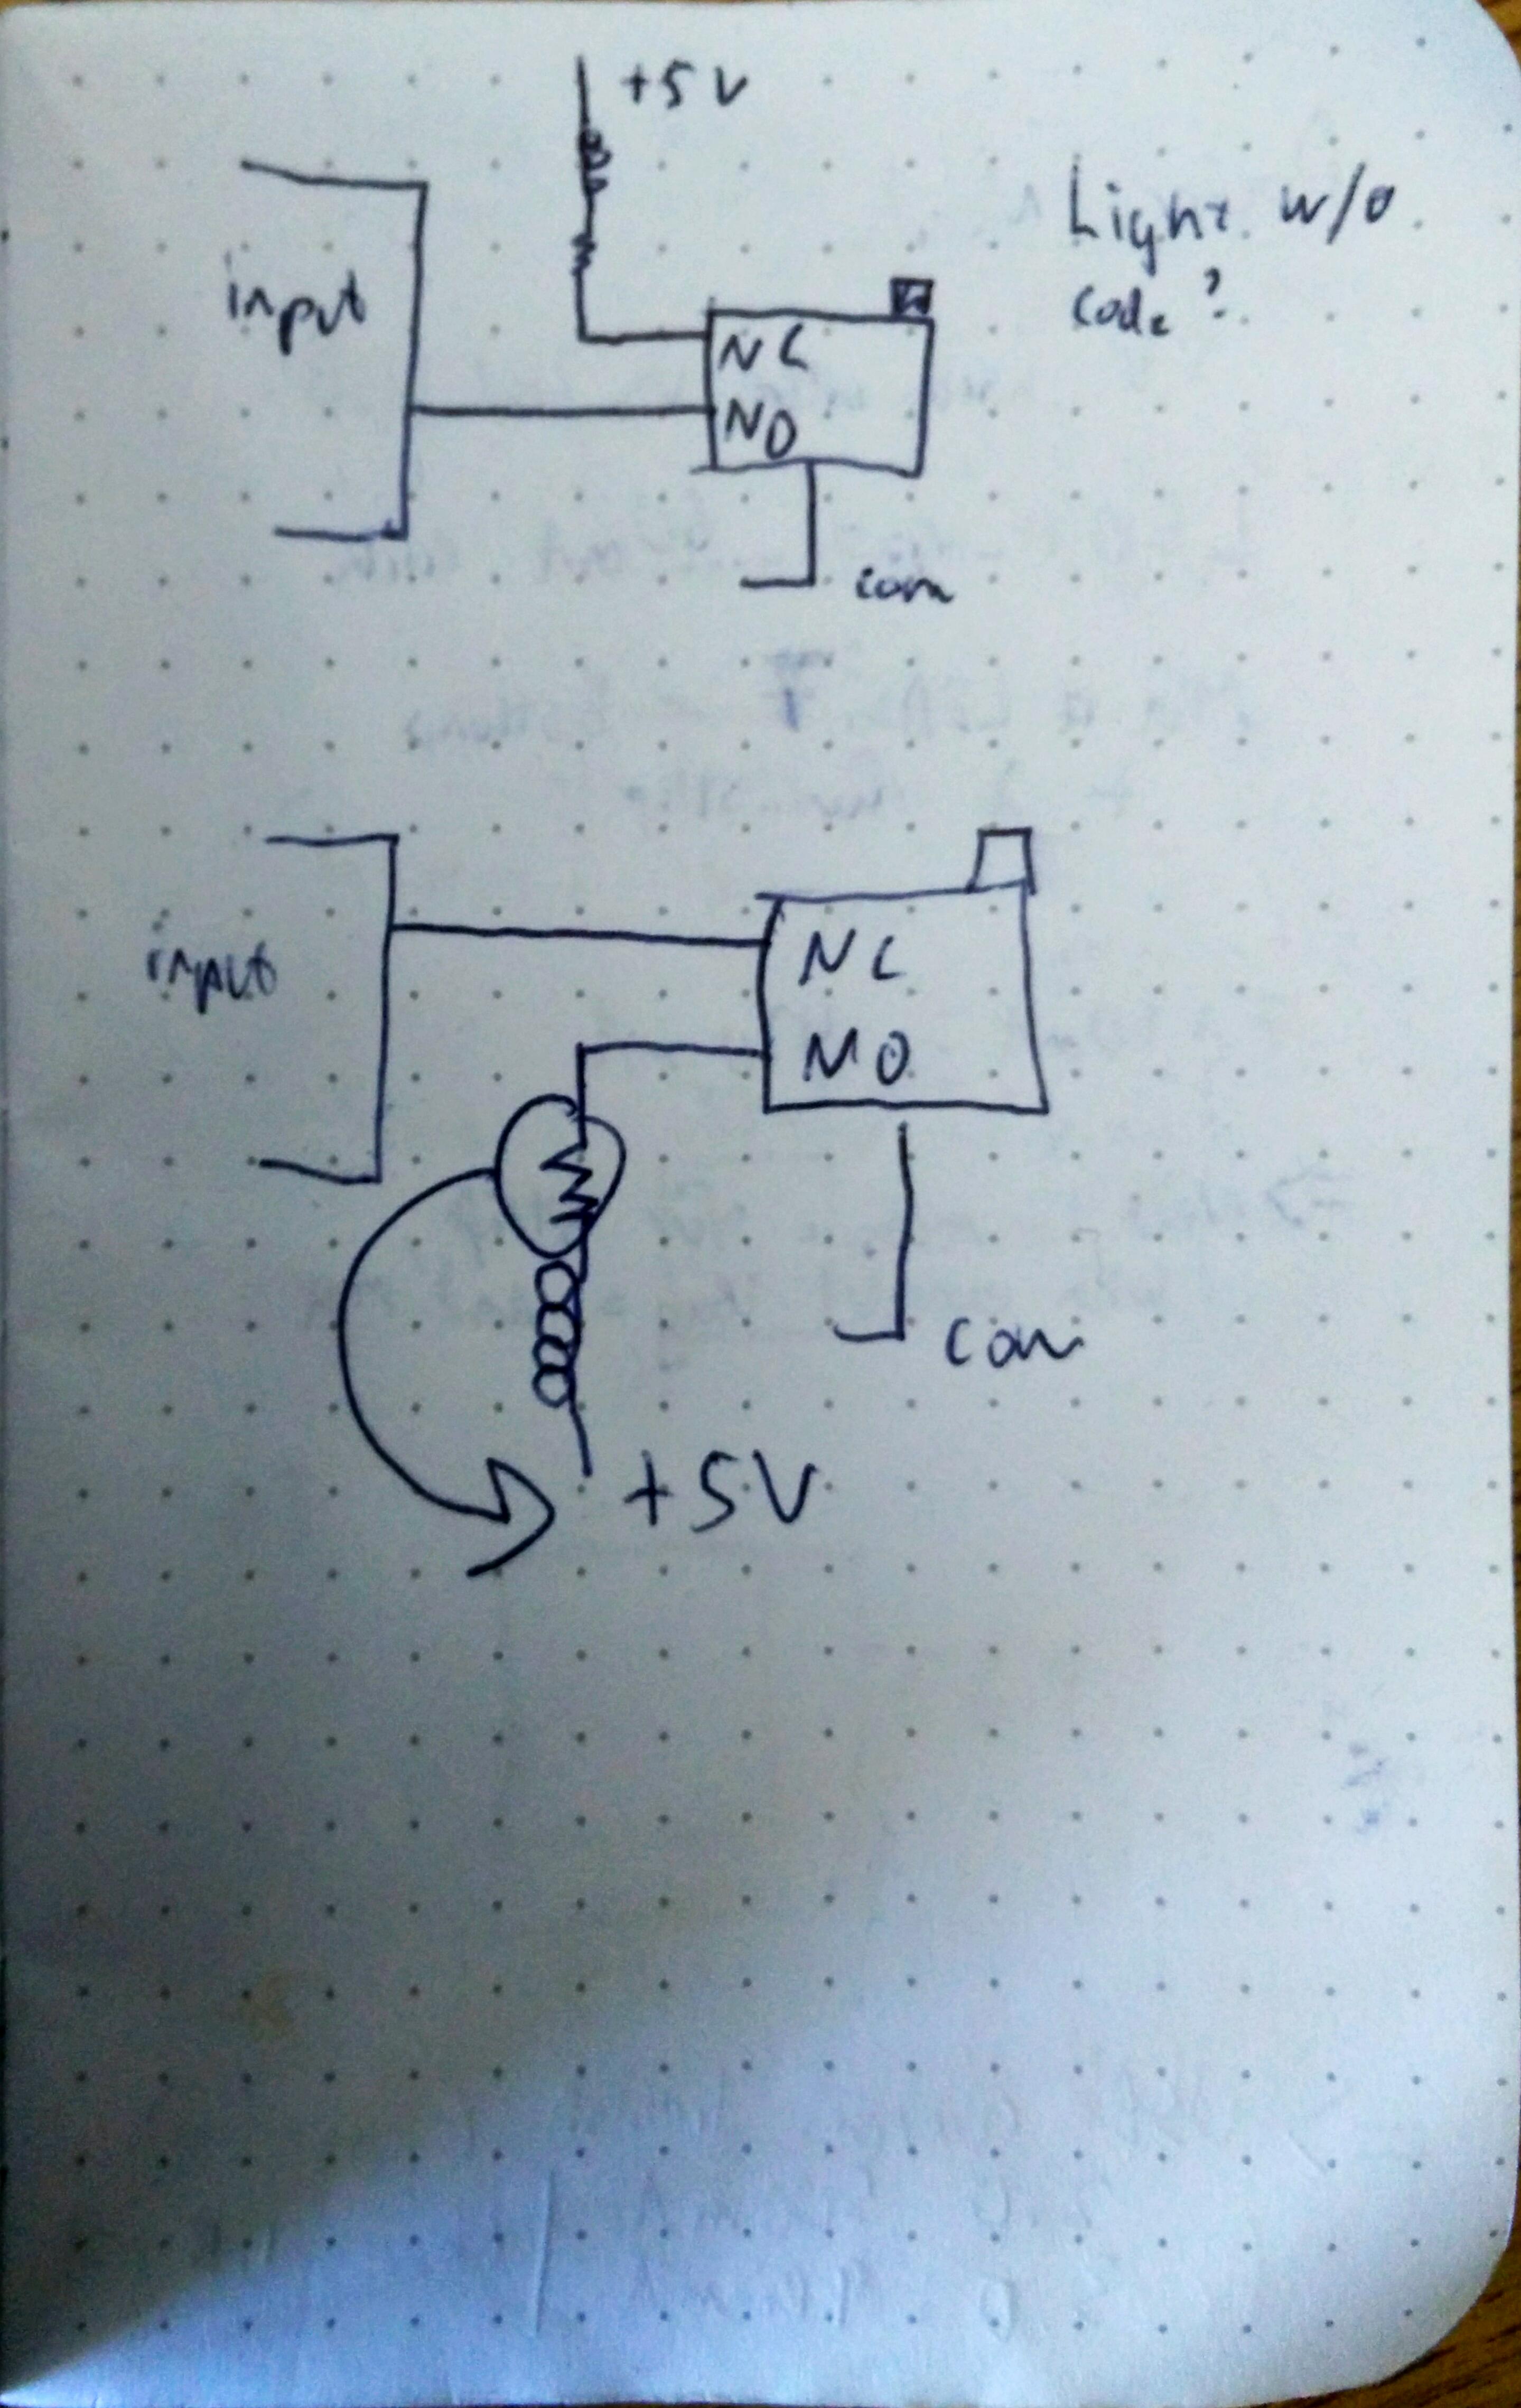 +5V
Light w/o
code?
input
NC
NO
com
input
NC
NO
com
+5V